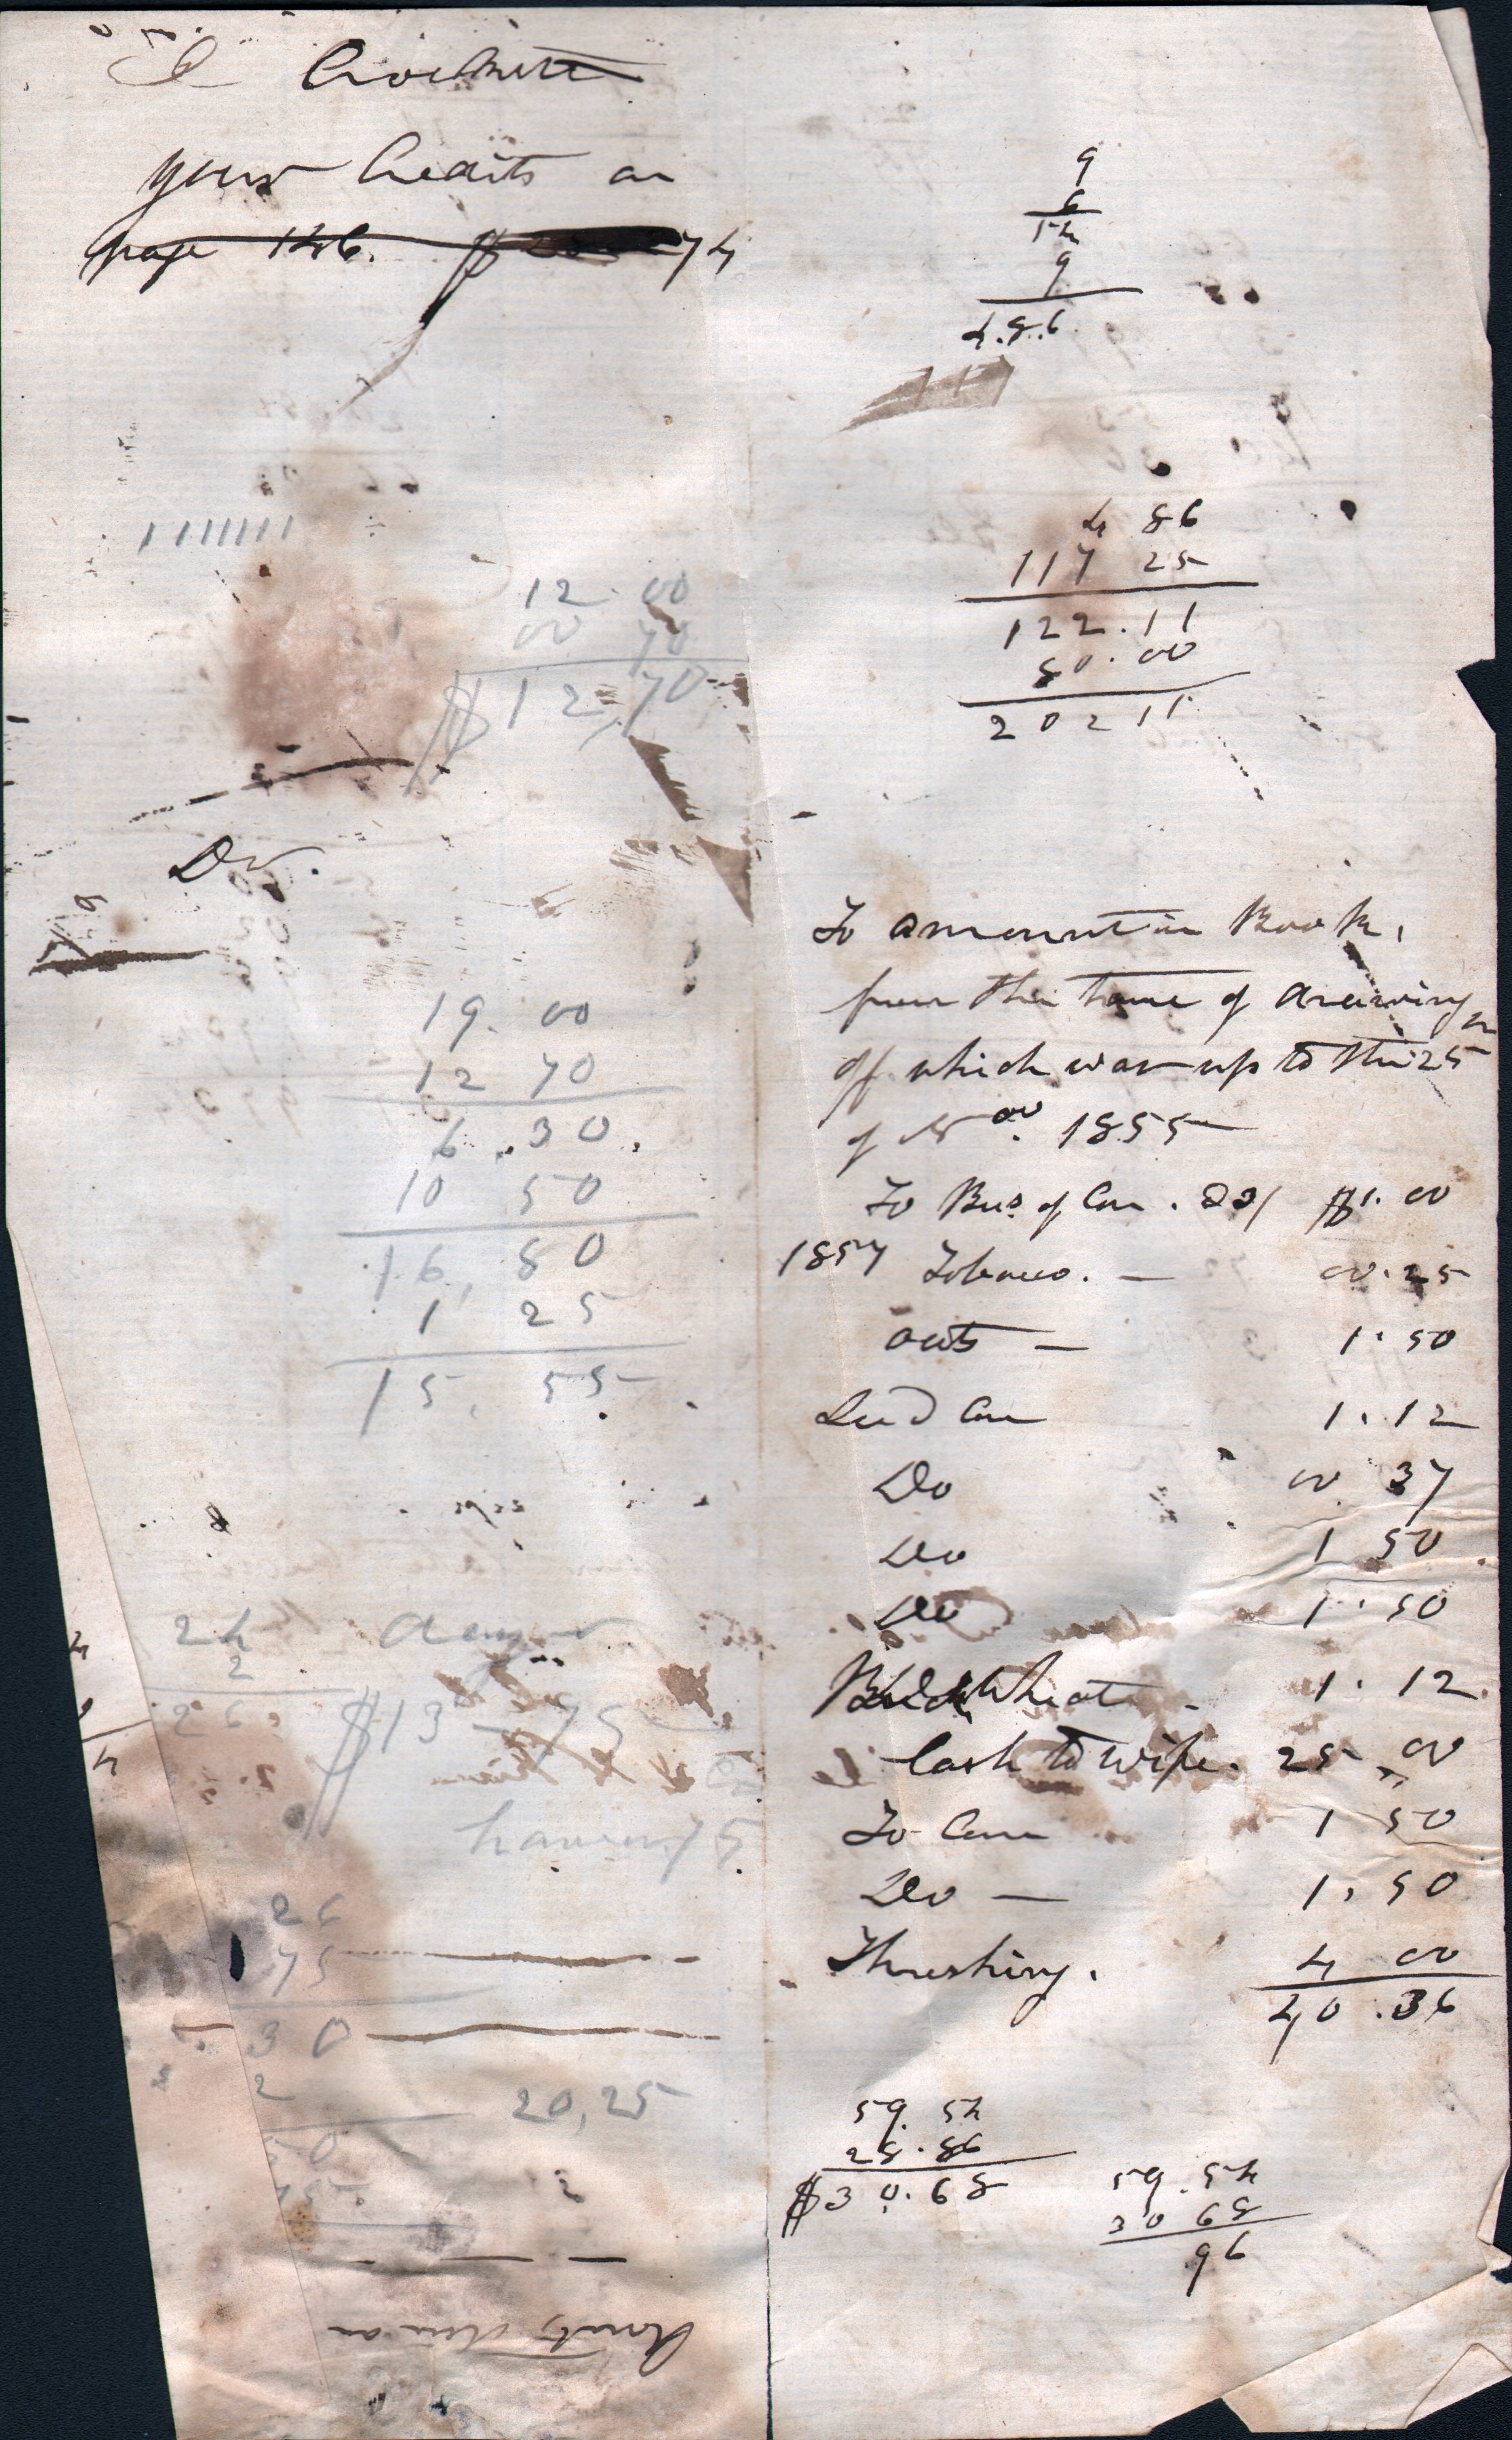 your Credits on
page 146. $ 74
1111111
12.00
00 70
$12,70
Dr.
19.00
12 70
6.30.
10 50
16,80
1 25
15,55
24
2
26
$13-75
75
26
75
30
2
20,25
50
9
6
54
9
4.8.6.
4 86
117 25
122.11
80.00
202 11
To amount in Book,
from the time of drawing
off which was up to the 25
of Nov. 1855
To Bus. of Corn. $1.00
1857 Tobacco. — 00.25
oats — 1.50
Corn 1.12
Do 00.37
Do 1 50
Do 1.50
Buckwheat - 1.12
Cash to wife. 25.00
To Corn 1 50
Do — 1.50
Threshing. 4 00
40.36
59.54
28.86
$30.68
59.54
30 68
96